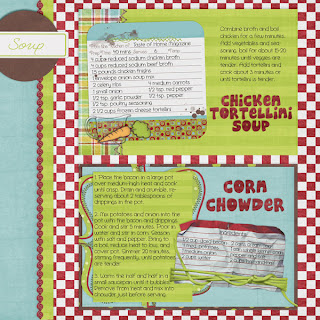 Soup
Taste of Home Magazine
40 mins
4 cups reduced sodium chicken broth
9 cups reduced sodium beef broth
15 pounds chicken thighs
1 envelope onion soup mix
2 celery ribs 4 medium carrots
1 small onion 1/2 tsp. red pepper
1/2 tsp. garlic powder 1/2 tsp. pepper
1/2 tsp. poultry seasoning
2 1/2 cups frozen cheese tortellini
Combine broth and boil
chicken for a few minutes.
Add vegetables and
boil for about 15-20
minutes until veggies are
tender. Add tortellini and
cook about 3 minutes or
until tortellini is tender.
CHICKEN
TORTELLINI
SOUP
1. Place the bacon in a large pot
over medium-high heat and cook
until crisp. Drain and crumble, re-
serving about 2 tablespoons of
drippings in the pot.
2. Mix potatoes and onion into the
pot with the bacon and drippings.
Cook and stir 5 minutes. Pour in
water and stir in corn. Season
with salt and pepper. Bring to
a boil, reduce heat to low, and
cover pot. Simmer 20 minutes,
stirring frequently, until potatoes
are tender.
3. Warm the half and half in a
small saucepan until it bubbles.
Remove from heat and mix into
chowder just before serving.
CORN
CHOWDER
Ingredients: